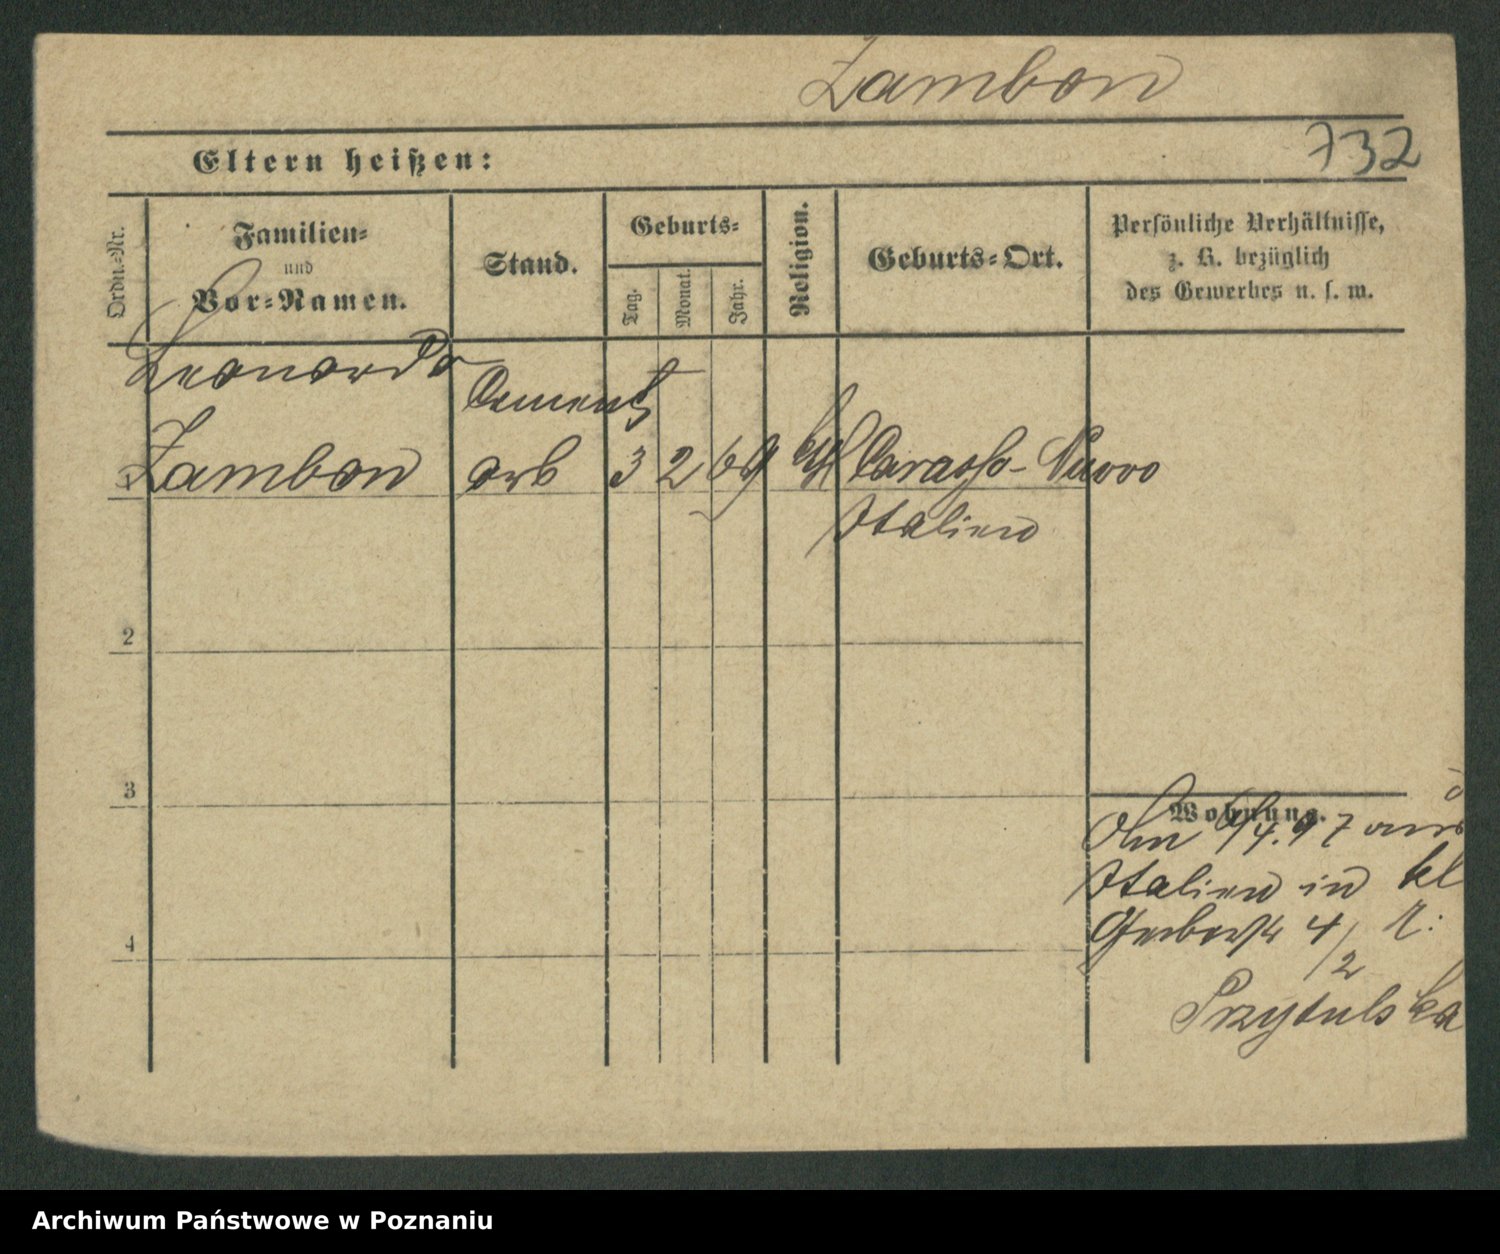 Zambon
732
Eltern heißen:
Ordn.-Nr.
Familien-
und
Vor-Namen.
Stand.
Geburts-
Tag.
Monat.
Jahr.
Religion.
Geburts-Ort.
Persönliche Verhältnisse,
z. B. bezüglich
des Gewerbes u. s. w.
Leonardo
Cement
Zambon
arb
3
2
69
Nuovo
Italien
2
3
4
Wohnung.
4.97 aus
Italien in kl
Gerberstr 4
2
Przytulska
Archiwum Państwowe w Poznaniu